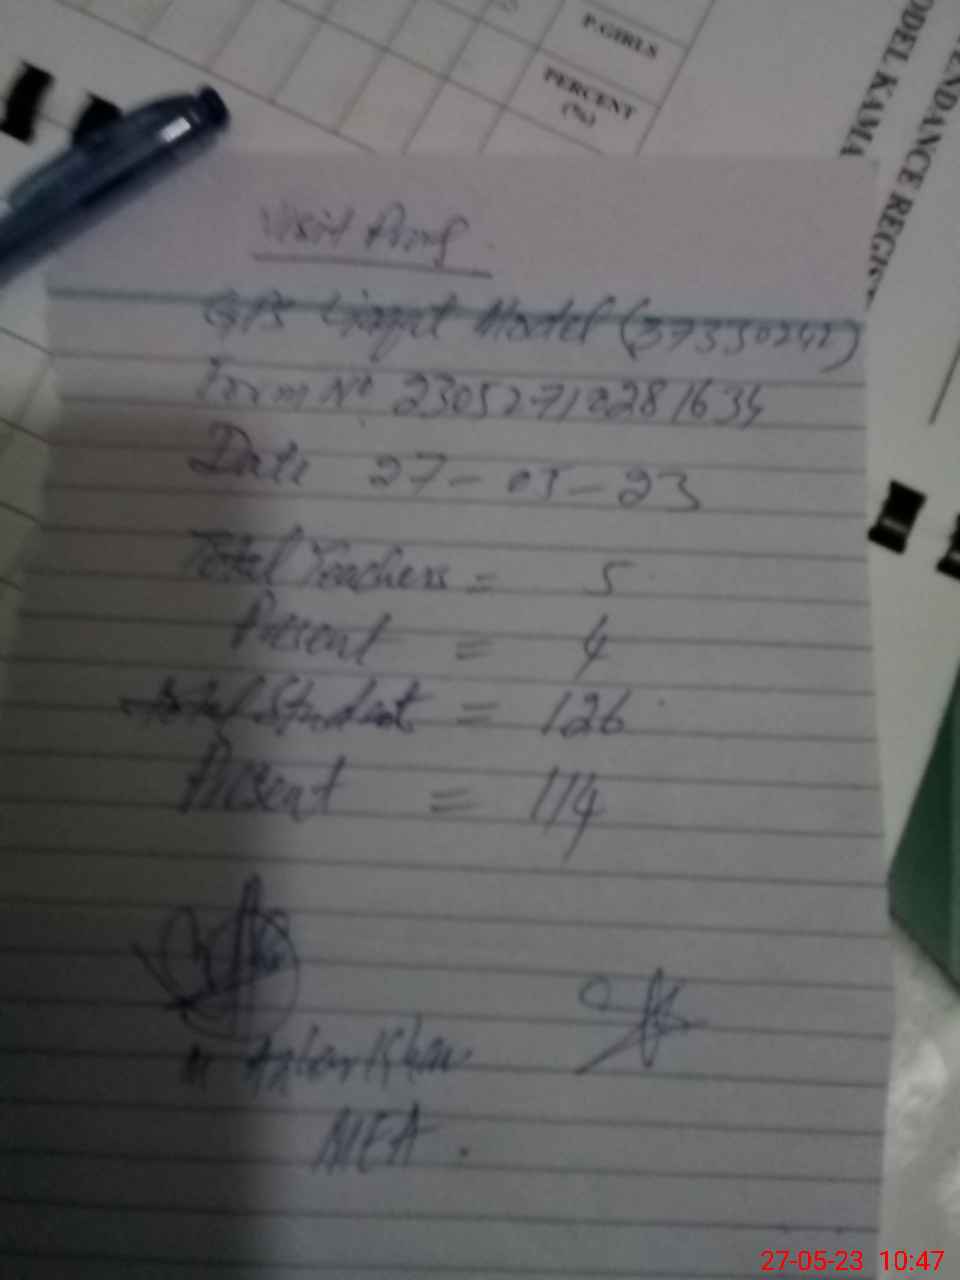 P.GIRLS
PERCENT
(%)
ODEL KAMA
Visit Proof
GPS Model (37330242)
Form No 230527102281634
Date 27-05-23
Total Teachers = 5
Present = 4
total Student = 126
Present = 114
Khan
MEA.
27-05-23 10:47